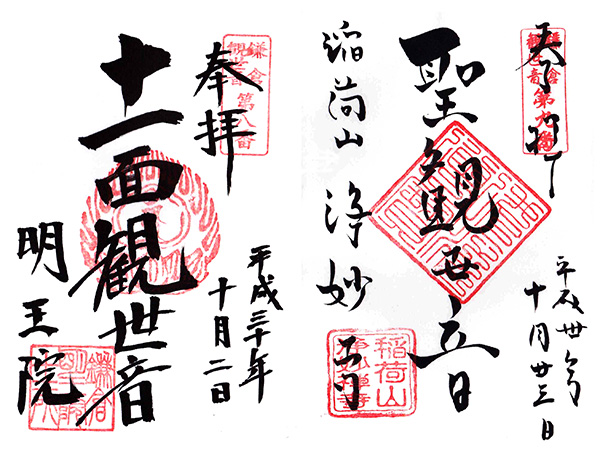 奉拝
鎌倉
観世音
第八番
十一面観世音
平成三十年
十月二日
明王院
奉拝
鎌倉
観世音
第九番
聖観世音
平成卅年
十月廿三日
稲荷山 浄妙寺
稲荷山